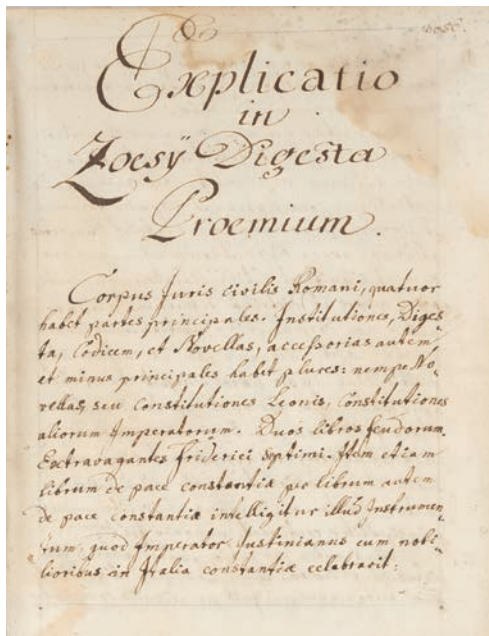 Explicatio
in
Zoesÿ Digesta
Proemium.
Corpus Juris civilis Romani, quatuor
habet partes principales. Institutiones, Diges-
ta, Codicem, et Novellas, accessorias autem
et minus principales habet plures: nempe No-
vellas, seu Constitutiones Leonis, Constitutiones
aliorum Imperatorum. Duos libros feudorum.
Extravagantes Friderici septimi. Item etiam
librum de pace constantiæ per librum autem
de pace constantiæ intelligitur illud Instrumen-
tum, quod Imperator Justinianus cum nobi-
lioribus in Italia constantiæ celebravit: